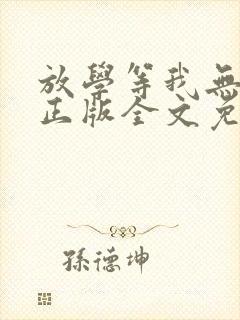 放學等我無
正版全文免
孫德坤